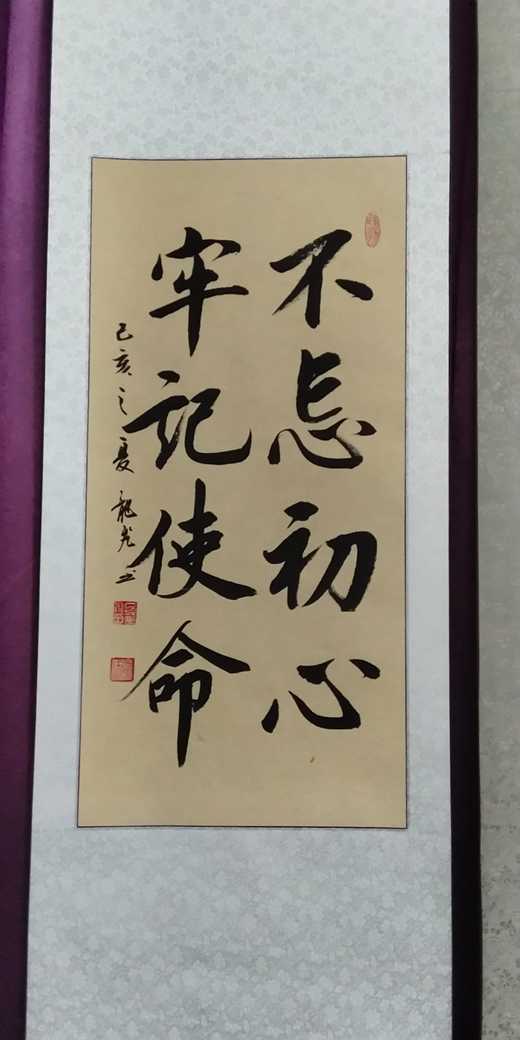 不忘初心
牢记使命
己亥之夏 龙光书